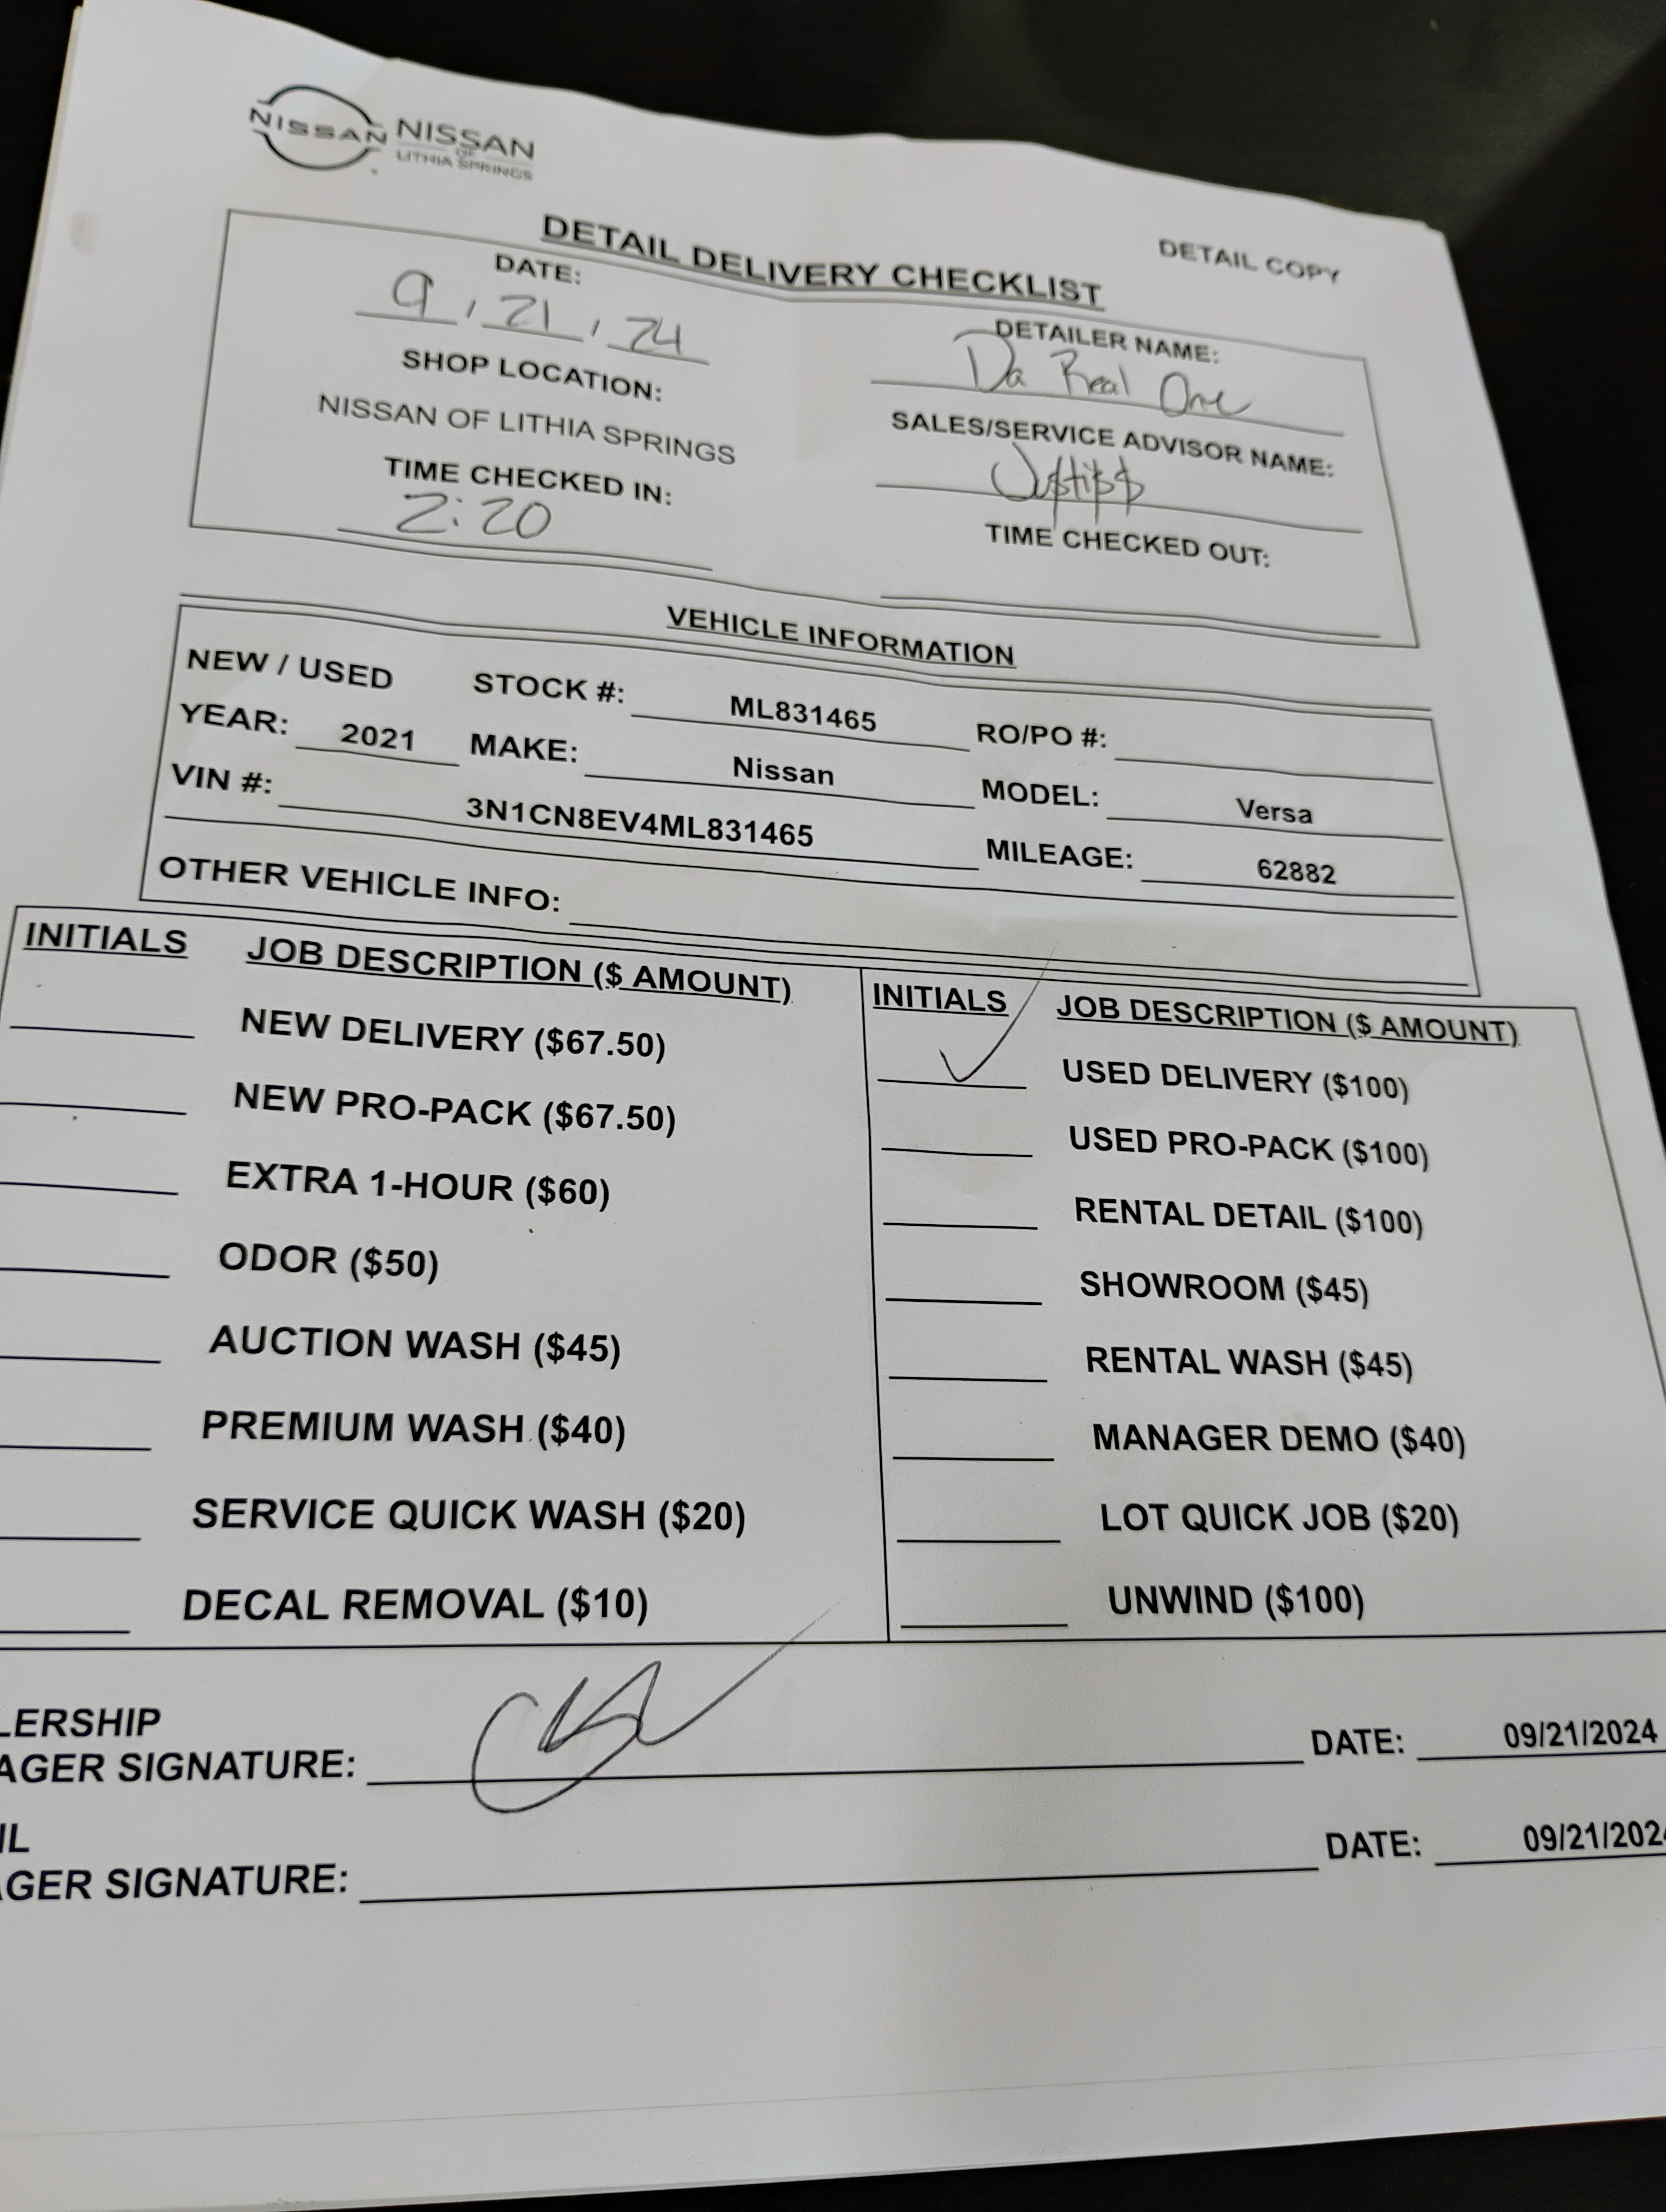 NISSAN NISSAN
OF
LITHIA SPRINGS
DETAIL COPY
DETAIL DELIVERY CHECKLIST
DATE:
9 / 21 / 24
DETAILER NAME:
Da Real One
SHOP LOCATION:
NISSAN OF LITHIA SPRINGS
SALES/SERVICE ADVISOR NAME:
Ju$ti$$
TIME CHECKED IN:
2:20
TIME CHECKED OUT:
VEHICLE INFORMATION
NEW / USED STOCK #: ML831465 RO/PO #:
YEAR: 2021 MAKE: Nissan MODEL: Versa
VIN #: 3N1CN8EV4ML831465 MILEAGE: 62882
OTHER VEHICLE INFO:
INITIALS JOB DESCRIPTION ($ AMOUNT)
NEW DELIVERY ($67.50)
NEW PRO-PACK ($67.50)
EXTRA 1-HOUR ($60)
ODOR ($50)
AUCTION WASH ($45)
PREMIUM WASH ($40)
SERVICE QUICK WASH ($20)
DECAL REMOVAL ($10)
INITIALS JOB DESCRIPTION ($ AMOUNT)
✓ USED DELIVERY ($100)
USED PRO-PACK ($100)
RENTAL DETAIL ($100)
SHOWROOM ($45)
RENTAL WASH ($45)
MANAGER DEMO ($40)
LOT QUICK JOB ($20)
UNWIND ($100)
LERSHIP
AGER SIGNATURE: DATE: 09/21/2024
IL
GER SIGNATURE: DATE: 09/21/202